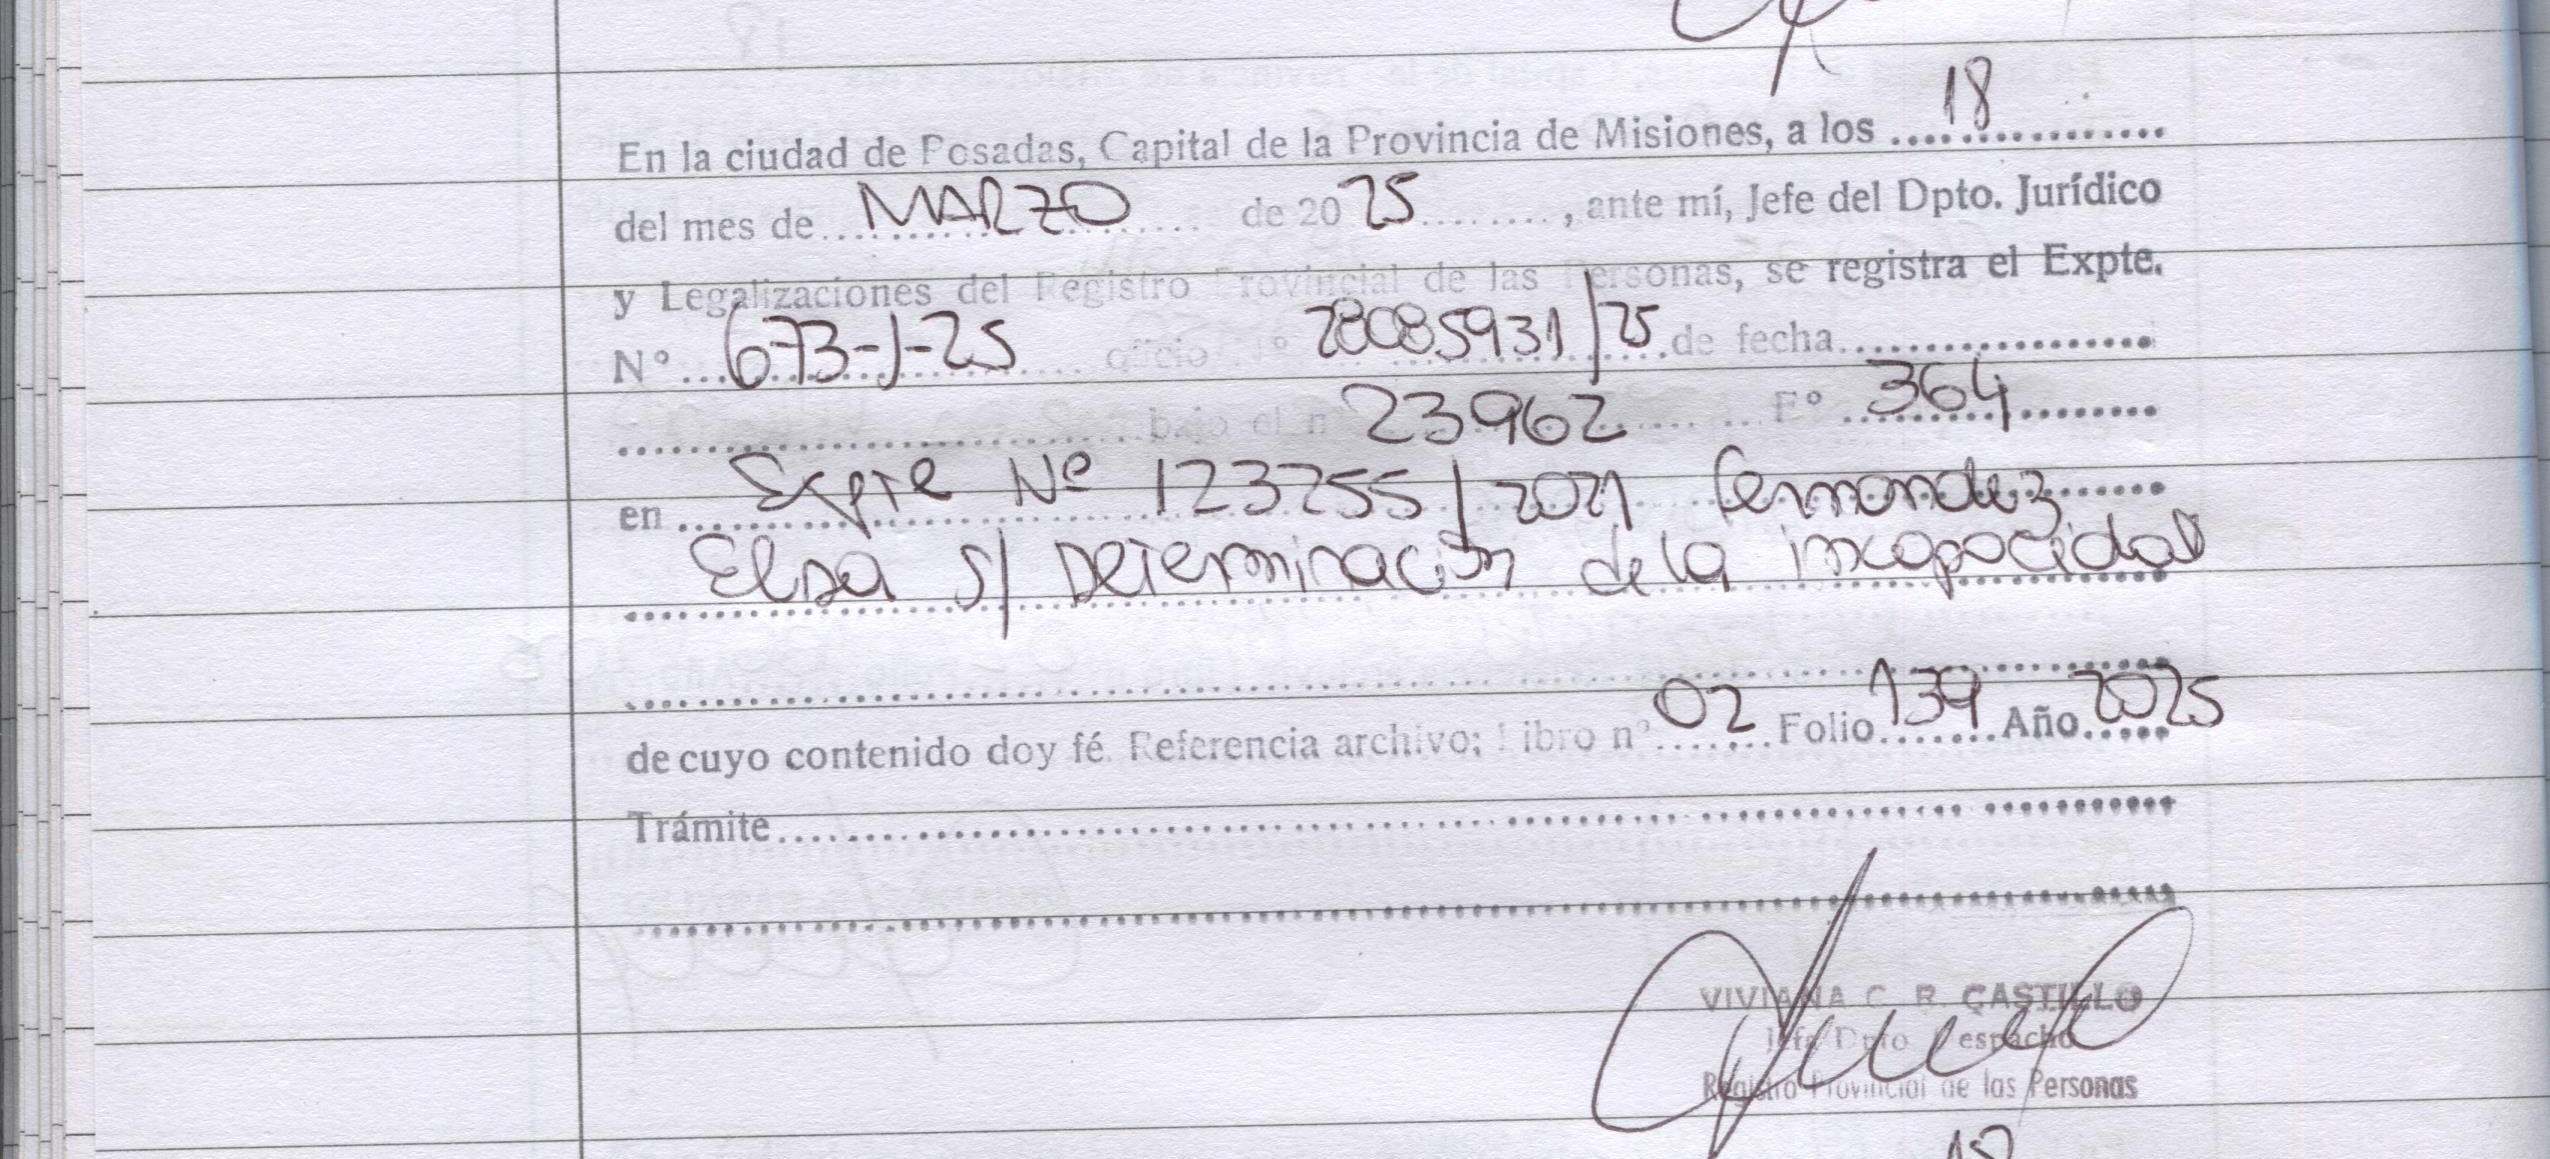 En la ciudad de Posadas, Capital de la Provincia de Misiones, a los 18
del mes de MARZO de 2025, ante mí, Jefe del Dpto. Jurídico
y Legalizaciones del Registro Provincial de las Personas, se registra el Expte.
N° 673-J-25 oficio N° 28085931/25 de fecha
bajo el n 23962 F° 364
en Expte Nº 123255/2021 Fernandez
Elsa s/ Determinación de la incapacidad
de cuyo contenido doy fé. Referencia archivo; Libro n° 02 Folio 139 Año 2025
Trámite
VIVIANA C. R. CASTILLO
Jefa Dpto Despacho
Registro Provincial de las Personas